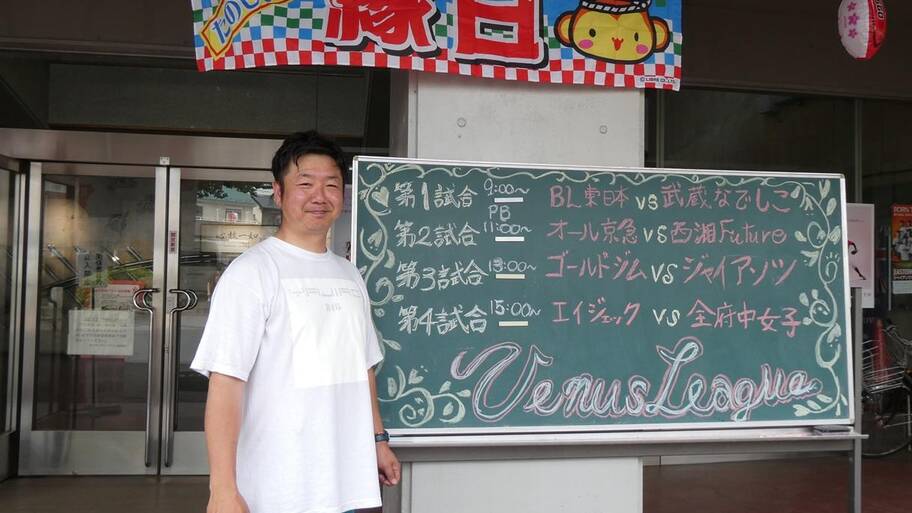 たのしい
縁日
© LIBRE CO.,LTD.
第1試合 9:00~ BL東日本 vs 武蔵なでしこ
PB
第2試合 11:00~ オール京急 vs 西湘Future
第3試合 13:00~ ゴールドジム vs ジャイアンツ
第4試合 15:00~ エイジェック vs 全府中女子
Venus League